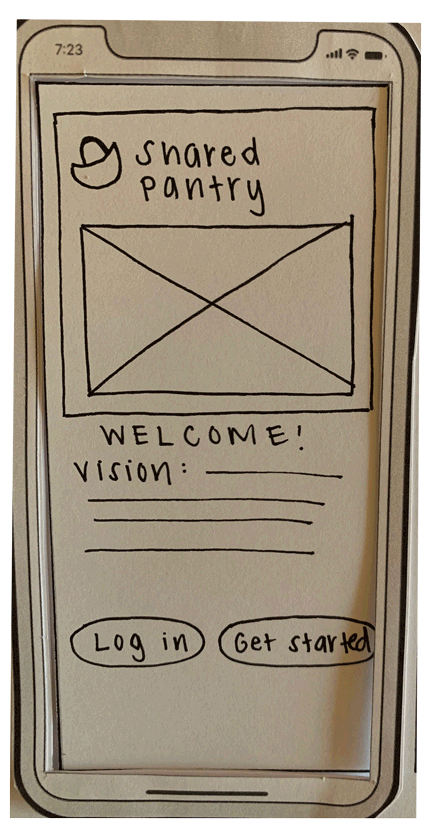 7:23
shared
pantry
WELCOME!
Vision:
Log in Get started